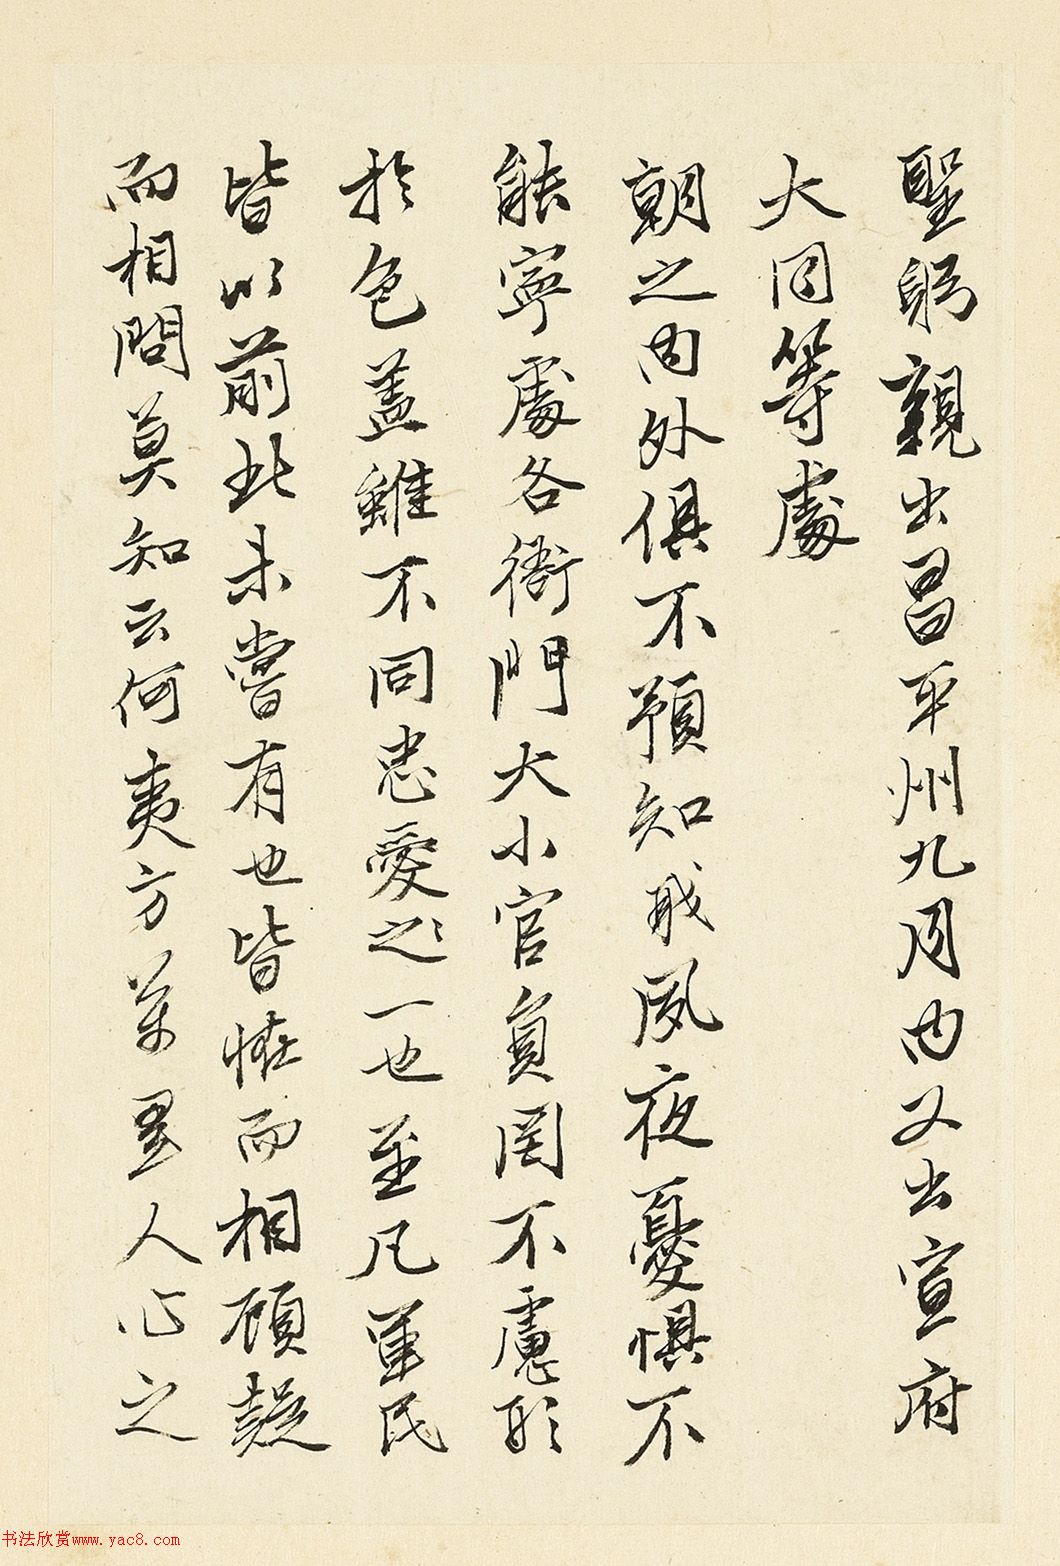 聖躬親出昌平州九月内又出宣府
大同等處
朝之内外俱不預知夙夜憂惧不
能寧處各衙門大小官員罔不慮形
於色蓋雖不同忠愛之一也至凡軍民
皆以前此未嘗有也皆恠而相顧疑
而相問莫知云何夷方萬里人心之
书法欣赏www.yac8.com